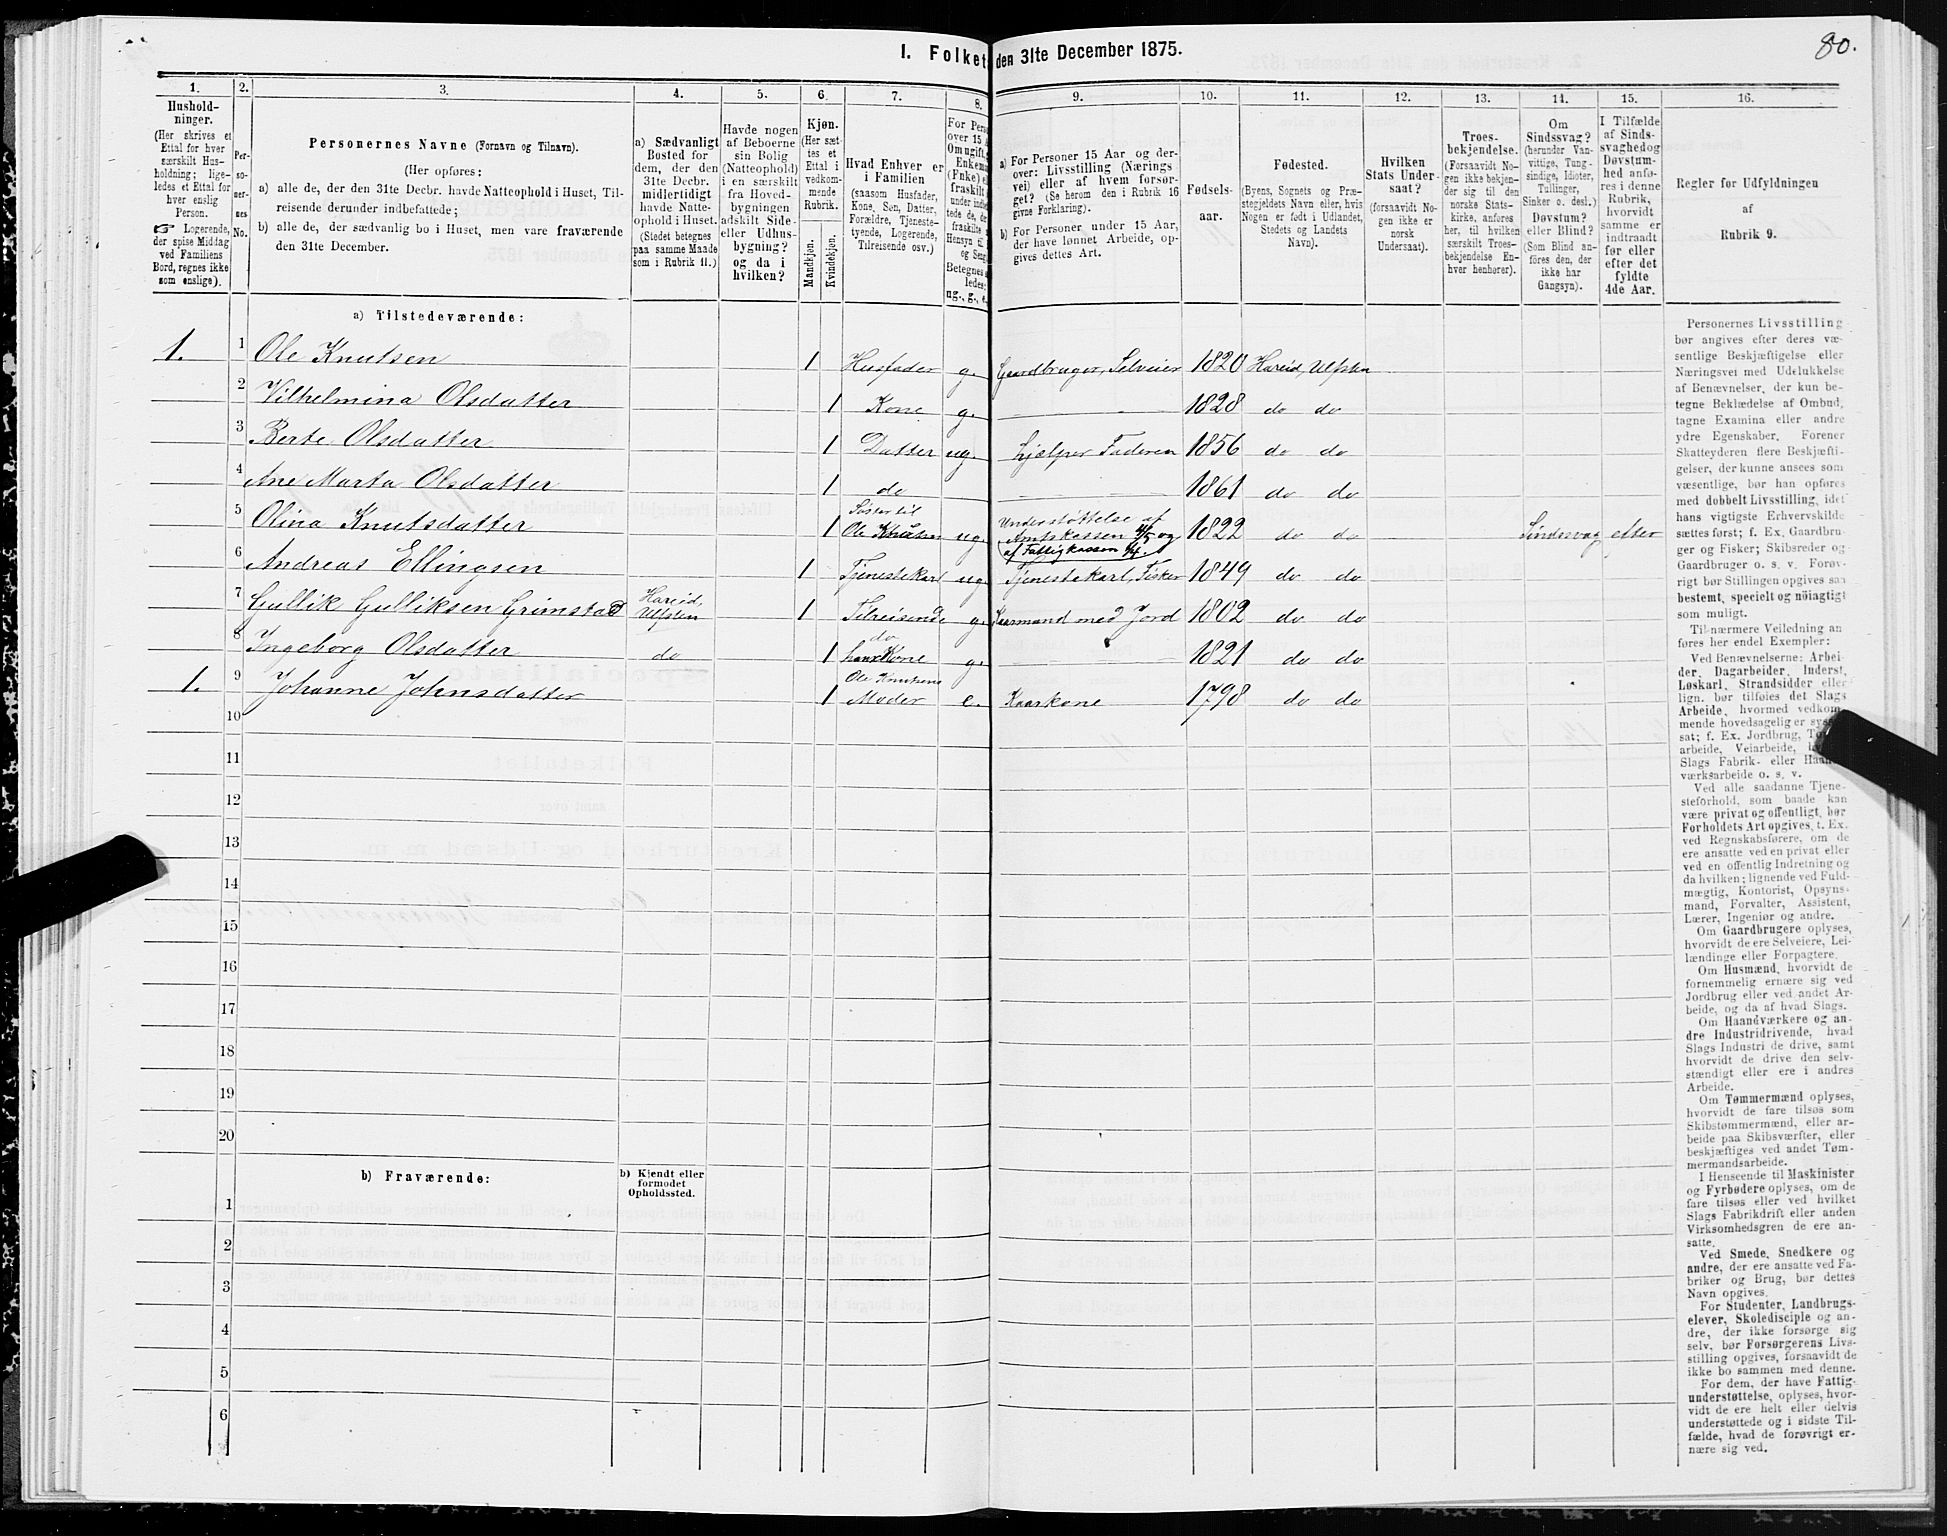 80.
I. Folket den 31te December 1875.
1. 2. 3. 4. 5. 6. 7. 8. 9. 10. 11. 12. 13. 14. 15. 16.
Hushold-
ninger.
(Her skrives et
Ettal for hver
særskilt Hus-
holdning; lige-
ledes et Ettal for
hver enslig
Person.
☞ Logerende,
der spise Middag
ved Familiens
Bord, regnes ikke
som enslige).
Per-
so-
ner-
nes
No.
Personernes Navne (Fornavn og Tilnavn).
(Her opføres:
a) alle de, der den 31te Decbr. havde Natteophold i Huset, Til-
reisende derunder indbefattede;
b) alle de, der sædvanlig bo i Huset, men vare fraværende
den 31te December.
a) Sædvanligt
Bosted for
dem, der den
31te Decbr.
midlertidigt
havde Natte-
ophold i Huset.
(Stedet betegnes
paa samme Maade
som i Rubrik 11.)
Havde nogen
af Beboerne
sin Bolig
(Natteophold)
i en særskilt
fra Hoved-
bygningen
adskilt Side-
eller Udhus-
bygning?
og da i
hvilken?
Kjøn.
(Her sæt-
tes et
Ettal i
vedkom-
mende
Rubrik.
Mandkjøn.
Kvindekjøn.
Hvad Enhver er
i Familien
(saasom Husfader,
Kone, Søn, Datter,
Forældre, Tjeneste-
tyende, Logerende,
Tilreisende osv.)
For Pers
over 15 A
Om ugift,
Enkema
(Enke) e
fraskilt
under indb
tede de, de
fraskilte
Hensyn til
og Seng
Betegnes
ledes:
ug., g., e.
a) For Personer 15 Aar og der-
over: Livsstilling (Nærings
vei) eller af hvem forsør-
get? (Se herom den i Rubrik 16
givne Forklaring).
b) For Personer under 15 Aar,
der have lønnet Arbeide, op-
gives dettes Art.
Fødsels-
aar.
Fødested.
(Byens, Sognets og Præ-
stegjeldets Navn eller, hvis
Nogen er født i Udlandet,
Stedets og Landets
Navn).
Hvilken
Stats Under-
saat?
(forsaavidt No-
gen ikke er
norsk
Undersaat).
Troes-
bekjendelse.
(Forsaavidt No-
gen ikke bekjen-
der sig til den
norske Stats-
kirke, anføres
her, til hvilken
særskilt Troes-
bekjendelse En-
hver henhører).
Om
Sindssvag?
(herunder Van-
vittige, Tung-
sindige, Idioter,
Tullinger,
Sinker o. desl.)
Døvstum?
eller Blind?
(Som Blind an-
føres den, der
ikke har
Gangsyn).
I Tilfælde
af Sinds-
svaghed og
Døvstum-
hed anfø-
res i denne
Rubrik,
hvorvidt
samme er
indtraadt
før eller
efter det
fyldte
4de Aar.
Regler for Udfyldningen
af
Rubrik 9.
a) Tilstedeværende:
1. 1 Ole Knutsen 1 Husfader g. Gaardbruger, Selveier 1820 Hareid, Ulfsten
2 Vilhelmina Olsdatter 1 Kone g. — — 1828 do do
3 Berte Olsdatter 1 Datter ug. hjælper Faderen 1856 do do
4 Ane Marta Olsdatter 1 do — — 1861 do do
5 Olina Knutsdatter 1 Søster til Ole Knutsen ug. Understøttelse af Amtskassen 4/5 og af Fattigkassen 1822 do do Sindssvag efter
6 Andreas Ellingsen 1 Tjenestekarl ug. Tjenestekarl, Fisker 1849 do do
7 Gullik Gulliksen Grimstad Hareid, Ulfsten 1 Tilreisende g. Kaarmand med Jord 1802 do do
8 Ingeborg Olsdatter do 1 do hans Kone g. — 1821 do do
1. 9 Johanne Johnsdatter 1 Ole Knutsens Moder e. Kaarkone 1798 do do
10
11
12
13
14
15
16
17
18
19
20
b) Fraværende:
b) Kjendt eller
formodet
Opholdssted.
1
2
3
4
5
6
Personernes Livsstilling
bør angives efter deres væ-
sentlige Beskjæftigelse eller
Næringsvei med Udelukkelse
af Benævnelser, der kun be-
tegne Beklædelse af Ombud,
tagne Examina eller andre
ydre Egenskaber. Forener
Skatteyderen flere Beskjæfti-
gelser, der kunne ansees som
væsentlige, bør han opføres
med dobbelt Livsstilling, idet
hans vigtigste Erhvervskilde
sættes først; f. Ex. Gaardbru-
ger og Fisker; Skibsreder og
Gaardbruger o. s. v. Forøv-
rigt bør Stillingen opgives saa
bestemt, specielt og nøiagtigt
som muligt.
Til nærmere Veiledning an
føres her endel Exempler:
Ved Benævnelserne: Arbei-
der, Dagarbeider, Inderst,
Løskarl, Strandsidder eller
lign. bør tilføies det Slags
Arbeide, hvormed vedkom-
mende hovedsagelig er syssel
sat; f. Ex. Jordbrug, To
arbeide, Veiarbeide, hv
Slags Fabrik- eller Haand
værksarbeide o. s. v.
Ved alle saadanne Tjene-
steforhold, som baade kan
være privat og offentligt, bør
Forholdets Art opgives, t. Ex.
ved Regnskabsførere, om de
ere ansatte ved en privat eller
ved en offentlig Indretning og
da hvilken; lignende ved Fuld-
mægtig, Kontorist, Opsyns-
mand, Forvalter, Assistent,
Lærer, Ingeniør og andre.
Om Gaardbrugere oplyses,
hvorvidt de ere Selveiere, Lei-
lændinge eller Forpagtere.
Om Husmænd, hvorvidt de
fornemmelig ernære sig ved
Jordbrug eller ved andet Ar-
beide, og da af hvad Slags.
Om Haandværkere og an-
dre Industridrivende, hvad
Slags Industri de drive, samt
hvorvidt de drive den selv-
stændigt eller ere i andres
Arbeide.
Om Tømmermænd oplyses,
hvorvidt de fare tilsøs som
Skibstømmermænd, eller ar-
beide paa Skibsværfter, eller
beskjæftiges ved andet Tøm-
mermandsarbeide.
I Henseende til Maskinister
og Fyrbødere oplyses, om de
fare tilsøs eller ved hvilket
Slags Fabrikdrift eller anden
Virksomhedsgren de ere an-
satte.
Ved Smede, Snedkere og
andre, der ere ansatte ved Fa-
briker og Brug, bør dettes
Navn opgives.
For Studenter, Landbrugs-
elever, Skoledisciple og an-
dre, der ikke forsørge sig
selv, bør Forsørgerens Livs-
stilling opgives, forsaavidt de
ikke bo sammen med denne.
For dem, der have Fattig-
understøttelse, oplyses, hvor-
vidt de ere helt eller delvis
understøttede og i sidste Til-
fælde, hvad de forøvrigt er-
nære sig ved.